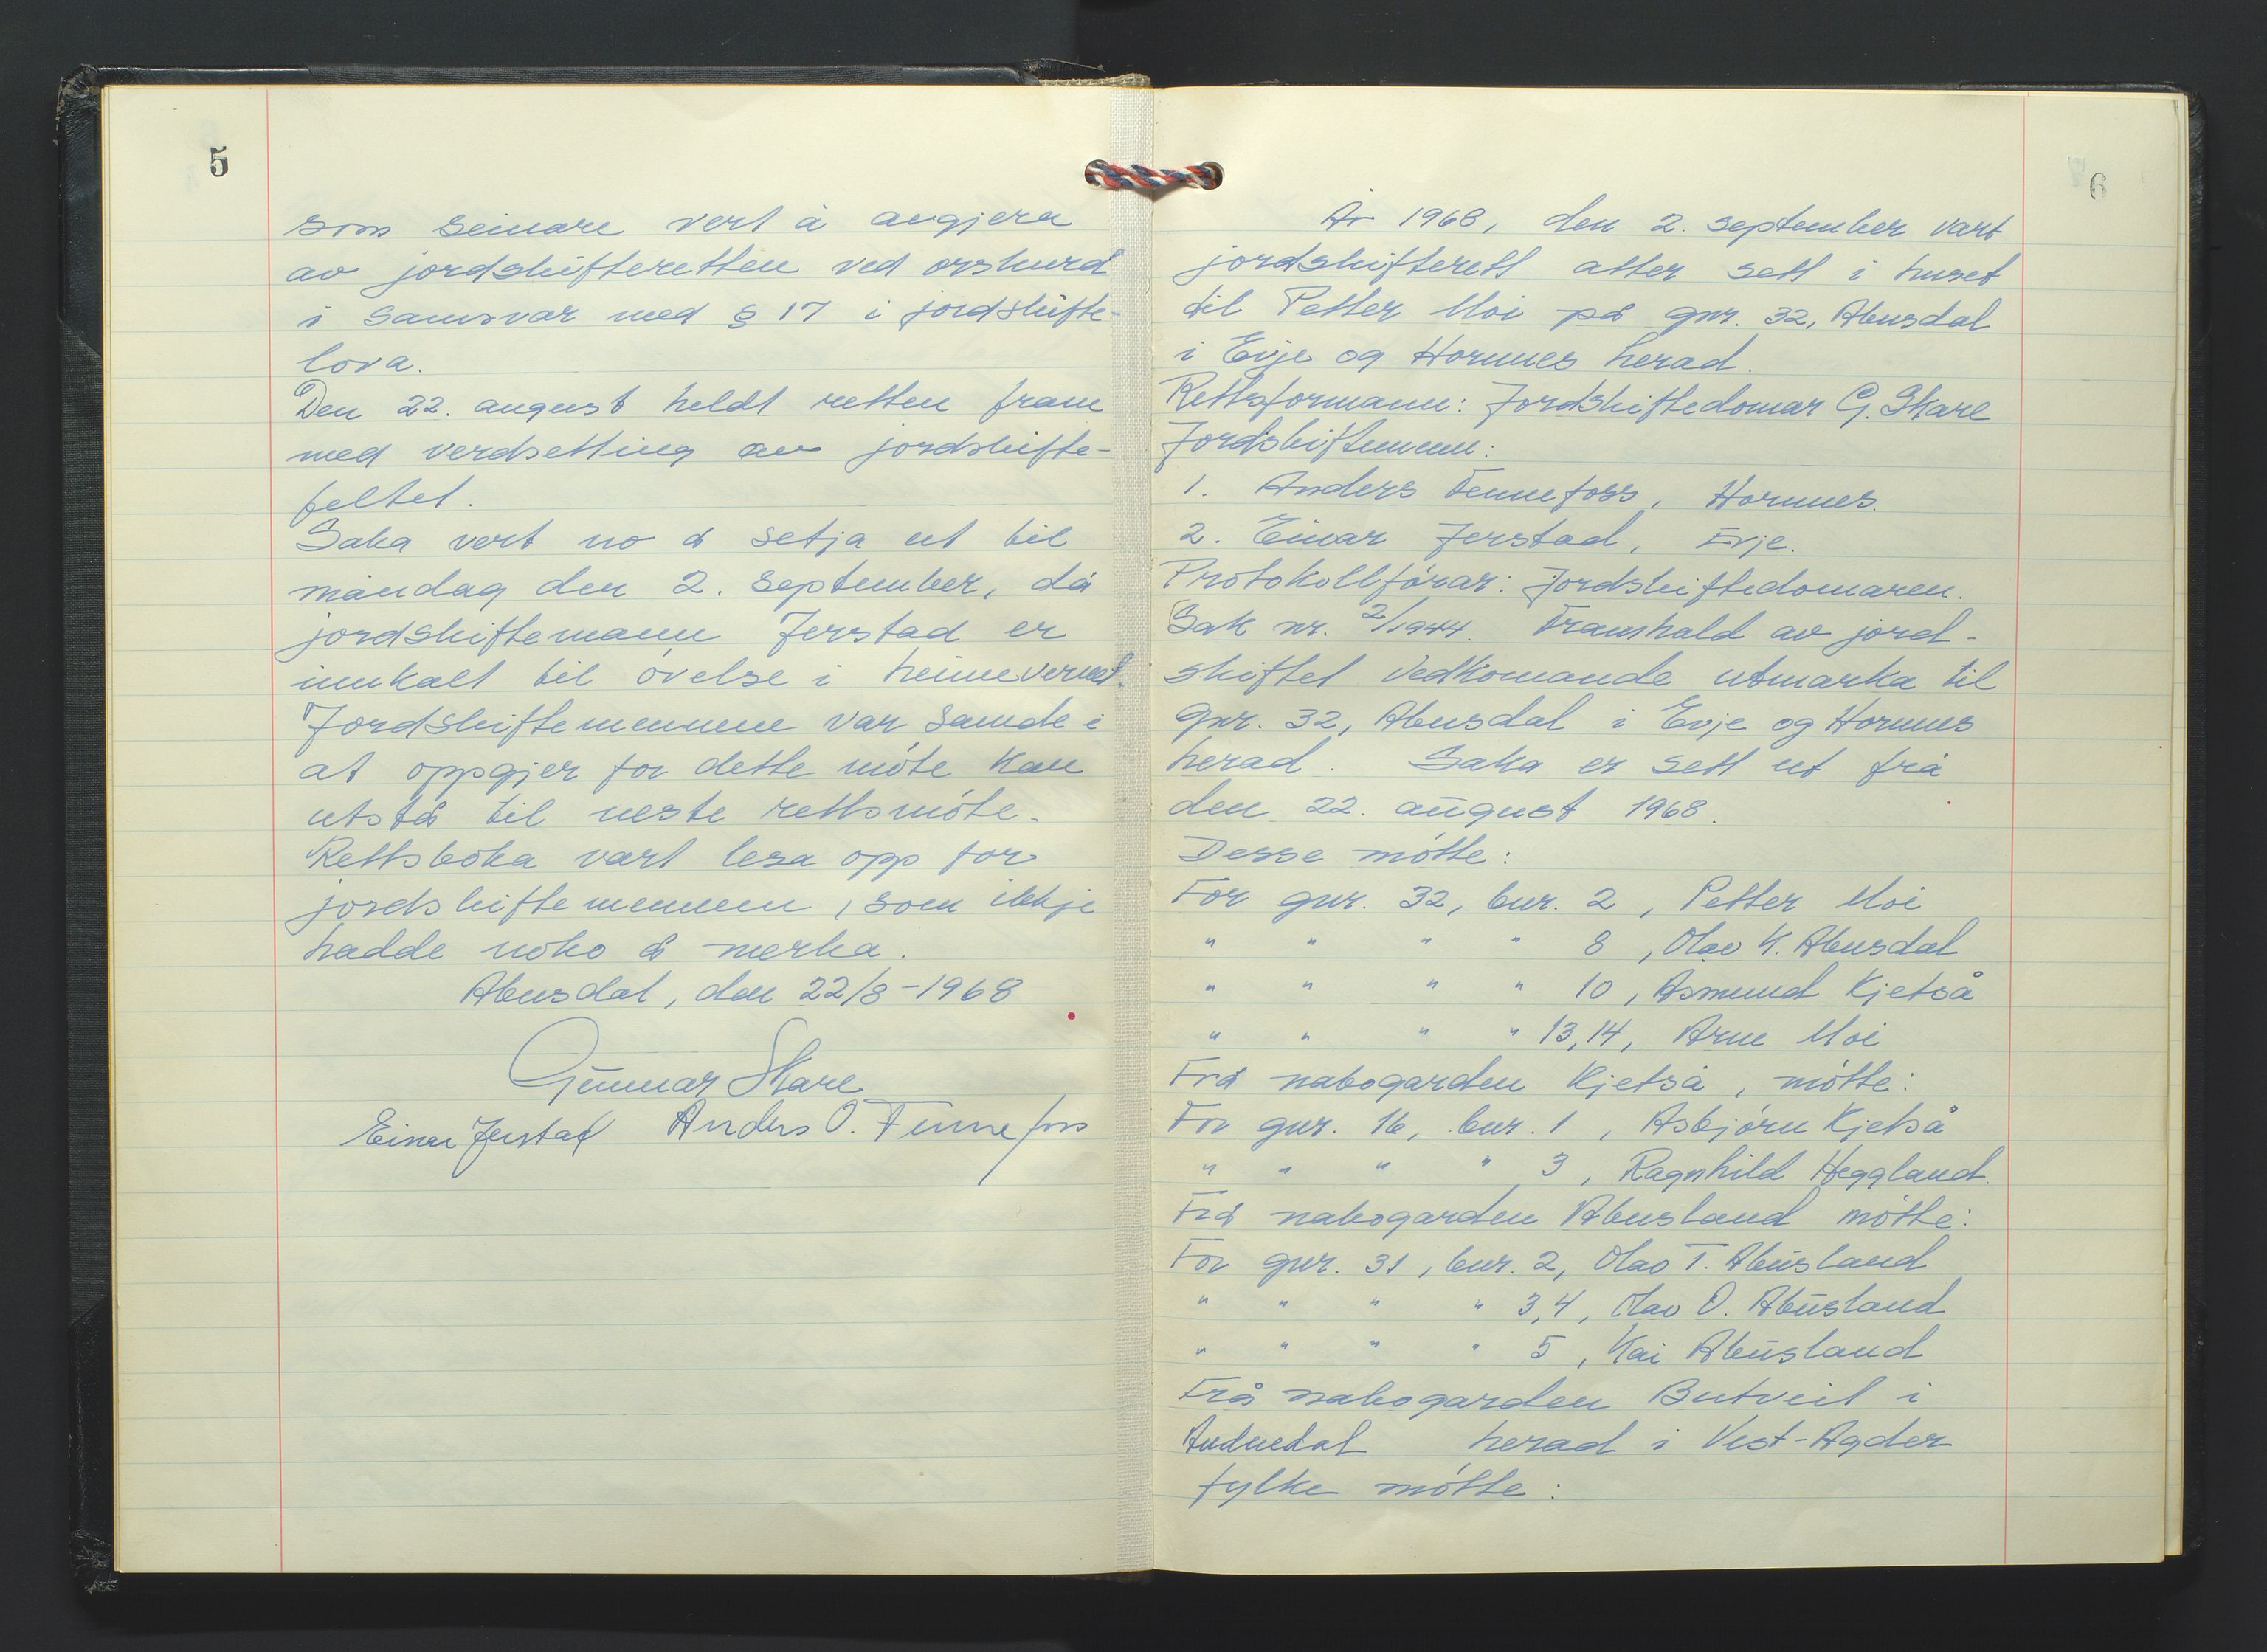 5
som seinare vert å avgjera
av jordskifteretten ved orskurd
i samsvar med § 17 i jordskifte-
lova.
Den 22. august heldt retten fram
med verdsetting av jordskifte-
feltet.
Saka vert no å setja ut til
måndag den 2. september, då
jordskiftemann Jerstad er
innkalt til övelse i heimevernet.
Jordskiftemennene var samde i
at oppgjer for dette möte kan
utstå til neste rettsmöte.
Rettsboka vart lesa opp for
jordskiftemennene, som ikkje
hadde noko å merka.
Abusdal, den 22/8-1968
Gunnar Skare
Einar Jerstad Anders O. Fennefoss
6
År 1968, den 2. september vart
jordskifterett atter sett i huset
til Petter Moi på gnr. 32, Abusdal
i Evje og Hornnes herad.
Rettsformann: Jordskiftedomar G. Skare
Jordskiftemenn:
1. Anders Fennefoss, Hornnes.
2. Einar Jerstad, Evje.
Protokollförar: Jordskiftedomaren.
Sak nr. 2/1944. Framhald av jord-
skiftet vedkomande utmarka til
gnr. 32, Abusdal i Evje og Hornnes
herad. Saka er sett ut frå
den 22. august 1968.
Desse mötte:
For gnr. 32, bnr. 2, Petter Moi
" " " " 8, Olav K. Abusdal
" " " " 10, Asmund Kjetså
" " " " 13,14, Arne Moi
Frå nabogarden Kjetså, mötte:
For gnr. 16, bnr. 1, Asbjörn Kjetså
" " " " 3, Ragnhild Heggland.
Frå nabogarden Abusland mötte:
For gnr. 31, bnr. 2, Olav T. Abusland
" " " " 3,4, Olav O. Abusland
" " " " 5, Kai Abusland
Frå nabogarden Butveit i
Audnedal herad i Vest-Agder
fylke mötte: